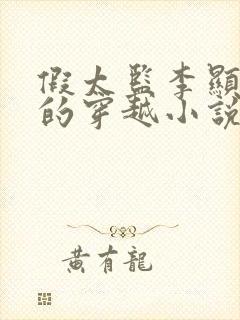 假太監李顯
的穿越小說
黃有龍